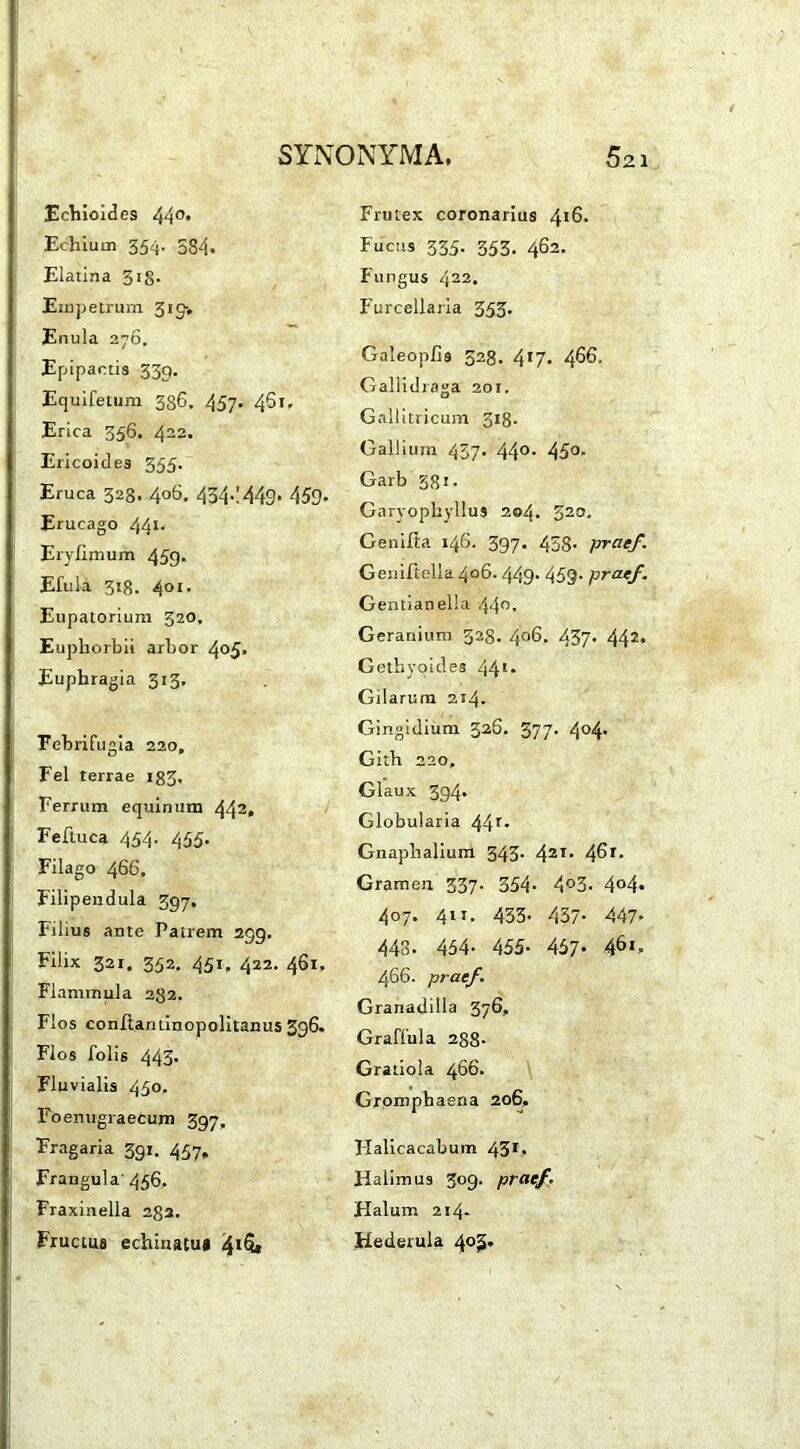 SYNONYMA. 521
Echioides 440.
Echium 354. 384.
Elatina 318.
Empetrum 319.
Enula 276.
Epipactis 339.
Equiſetum 386. 457. 461.
Erica 356. 422.
Ericoides 355.
Eruca 328. 406. 434. 449. 459.
Erucago 441.
Eryſimum 459.
Eſula 318. 401.
Eupatorium 320.
Euphorbii arbor 405.
Euphragia 313.
Febrifugia 220.
Fel terrae 183.
Ferrum equinum 442.
Feſtuca 454. 455.
Filago 466.
Filipendula 397.
Filius ante Patrem 299.
Filix 321. 352. 451. 422. 461.
Flammula 282.
Flos conſtantinopolitanus 396.
Flos ſolis 443.
Fluvialis 450.
Foenugraecum 397.
Fragaria 391. 457.
Frangula 456.
Fraxinella 282.
Fructus echinatus 416.
Frutex coronarius 416.
Fucus 335. 353. 462.
Fungus 422.
Furcellaria 353.
Galeopſis 328. 417. 466.
Gallidraga 201.
Gallitricum 318.
Gallium 437. 440. 450.
Garb 381.
Garyophyllus 204. 320.
Geniſta 146. 397. 438. praef.
Geniſtella 406. 449. 459. praef.
Gentianella 440.
Geranium 328. 406. 437. 442.
Gethyoides 441.
Gilarum 214.
Gingidium 326. 377. 404.
Gith 220.
Glaux 394.
Globularia 441.
Gnaphalium 343. 421. 461.
Gramen 337. 354. 403. 404.
407. 411. 433. 437. 447.
448. 454. 455. 457. 461.
466. praef.
Granadilla 376.
Graſſula 288.
Gratiola 466.
Gromphaena 206.
Halicacabum 431.
Halimus 309. praef.
Halum 214.
Hederula 403.